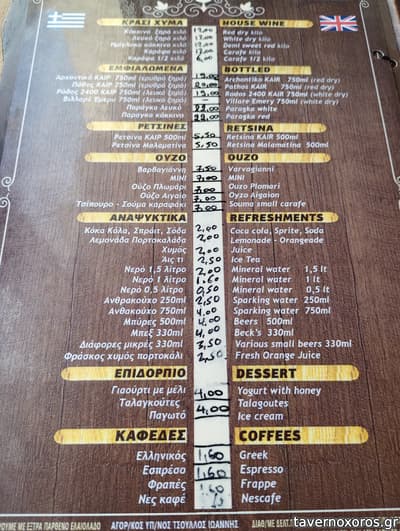 ΚΡΑΣΙ ΧΥΜΑ HOUSE WINE
Κόκκινο ξηρό κιλό Red dry kilo
Λευκό ξηρό κιλό White dry kilo
Ημίγλυκο κόκκινο κιλό Demi sweet red kilo
Καράφα κιλό Carafe kilo
Καράφα 1/2 κιλό 6,00 Carafe 1/2 kilo
ΕΜΦΙΑΛΩΜΕΝΑ BOTTLED
Αρχοντικό ΚΑΙΡ 750ml (ερυθρο ξηρο) 19,00 Archontiko KAIR 750ml (red dry)
Πάθος ΚΑΙΡ 750ml (ερυθρο ξηρο) Pathos KAIR 750ml (red dry)
Ρόδος 2400 ΚΑΙΡ 750ml (λευκο ξηρο) 19,00 Rodos 2400 KAIR 750ml (white dry)
Βιλλαρέ Εμερυ 750ml (λευκο ξηρο) Villare Emery 750ml (white dry)
Παράγκα λευκό 22,00 Paragka white
Παράγκα κόκκινο 22,00 Paragka red
ΡΕΤΣΙΝΕΣ RETSINA
Ρετσίνα ΚΑΙΡ 500ml 5,50 Retsina KAIR 500ml
Ρετσίνα Μαλαματίνα 5,50 Retsina Malamatina 500ml
ΟΥΖΟ OUZO
Βαρβαγιάννη 7,50 Varvagianni
ΜΙΝΙ 7,00 MINI
Ούζο Πλωμάρι 7,00 Ouzo Plomari
Ούζο Αιγαίο 7,00 Oyzo Aigaion
Τσίπουρο - Σούμα καραφάκι 7,00 Souma small carafe
ΑΝΑΨΥΚΤΙΚΑ REFRESHMENTS
Κόκα Κόλα, Σπράιτ, Σόδα 2,00 Coca cola, Sprite, Soda
Λεμονάδα Πορτοκαλάδα 2,00 Lemonade - Orangeade
Χυμός 2,00 Juice
Άις τι 2,50 Ice Tea
Νερό 1,5 λίτρο 2,00 Mineral water 1,5 lt
Νερό 1 λίτρο 1,60 Mineral water 1 lt
Νερό 0,5 λίτρο 0,50 Mineral water 0,5 lt
Ανθρακούχο 250ml 2,50 Sparking water 250ml
Ανθρακούχο 750ml 4,00 Sparking water 750ml
Μπύρες 500ml 4,00 Beers 500ml
Μπεξ 330ml 4,00 Beck's 330ml
Διάφορες μικρές 330ml 3,50 Various small beers 330ml
Φράσκος χυμός πορτοκάλι 2,50 Fresh Orange Juice
ΕΠΙΔΟΡΠΙΟ DESSERT
Γιαούρτι με μέλι 4,00 Yogurt with honey
Ταλαγκούτες Talagoutes
Παγωτό 4,00 Ice cream
ΚΑΦΕΔΕΣ COFFEES
Ελληνικός 1,60 Greek
Εσπρέσο 1,60 Espresso
Φραπές Frappe
Νες καφέ Nescafe
ΜΕ ΕΞΤΡΑ ΠΑΡΘΕΝΟ ΕΛΑΙΟΛΑΔΟ ΑΓΟΡ/ΚΟΣ ΥΠ/ΝΟΣ ΤΣΟΥΛΛΟΣ ΙΩΑΝΝΗΣ
tavernoxoros.gr